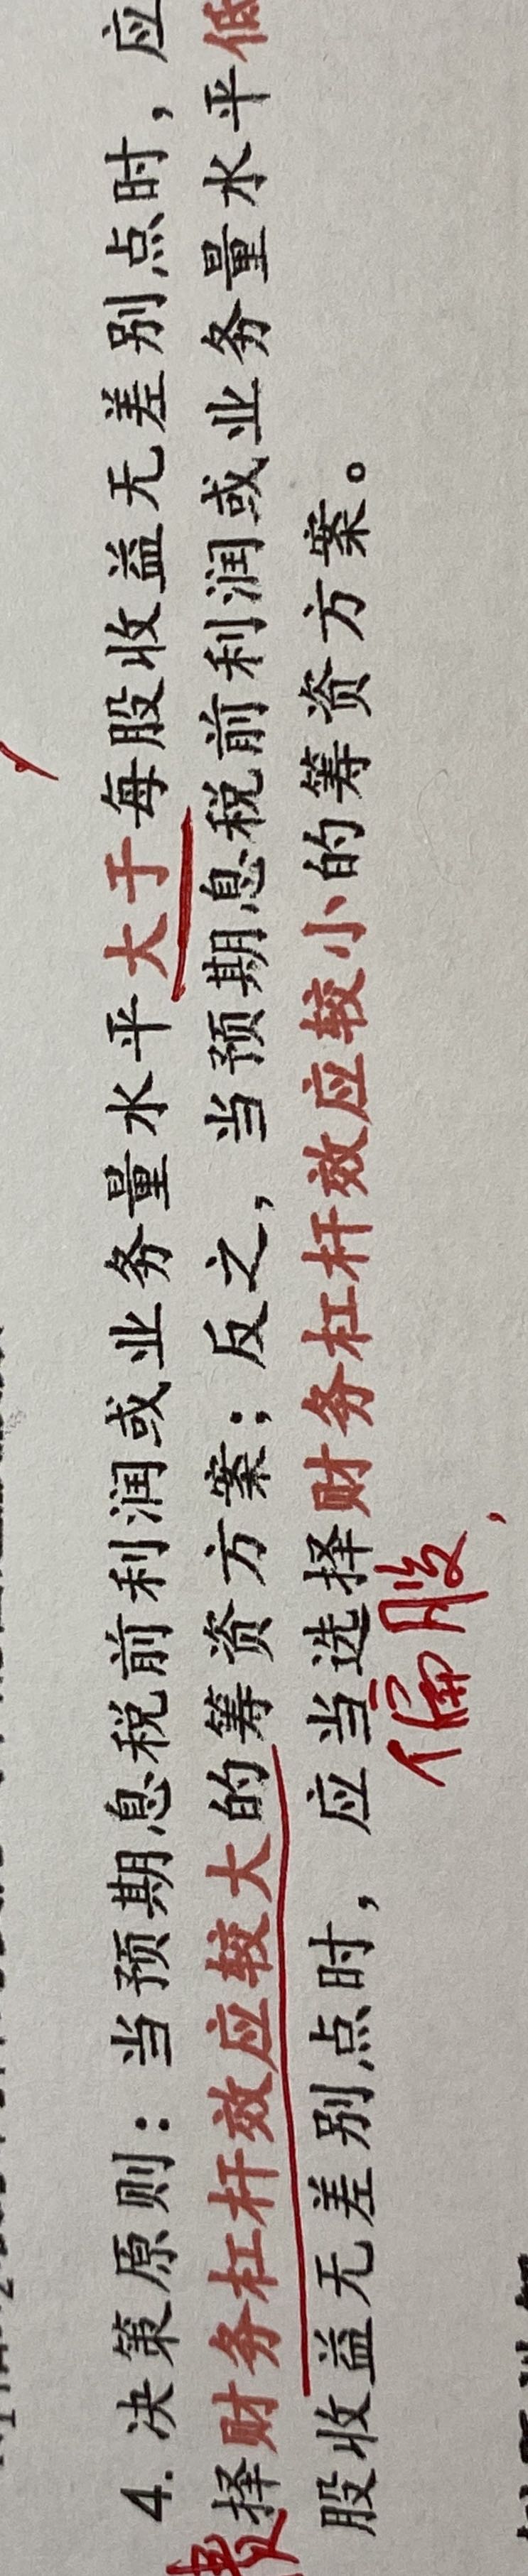 4. 决策原则：当预期息税前利润或业务量水平大于每股收益无差别点时，应
择财务杠杆效应较大的筹资方案；反之，当预期息税前利润或业务量水平低
股收益无差别点时，应当选择财务杠杆效应较小的筹资方案。
偏股